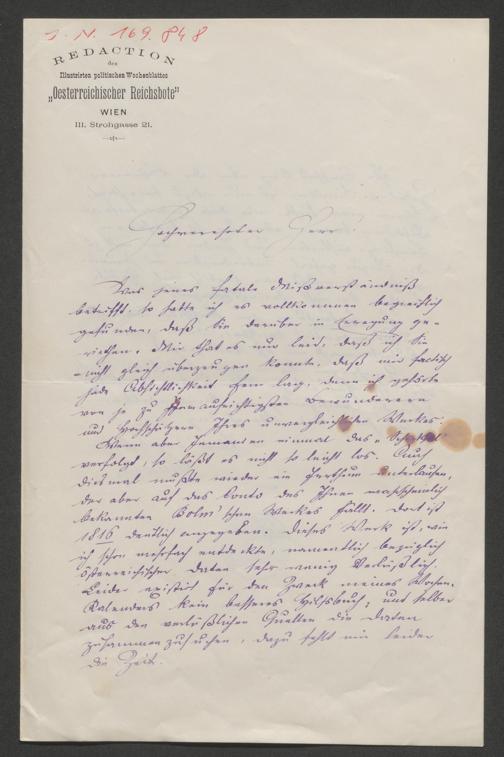 J. N. 169.848
REDACTION
des
Illustrirten politischen Wochenblattes
„Oesterreichischer Reichsbote"
WIEN
III. Strohgasse 21.
Hochverehrter Herr!
Was jenes fatale Mißverständniß
betrifft, so hatte ich es vollkommen begreiflich
gefunden, daß Sie darüber in Erregung ge-
riethen. Mir that es nur leid, daß ich Sie
nicht gleich überzeugen konnte, daß mir factisch
jede Absichtlichkeit fern lag, denn ich gehörte
von je zu Ihren aufrichtigsten Bewunderern
und Hochschätzern Ihres unvergleichlichen Werkes.
Wenn aber Jemanden einmal das Schicksal
verfolgt, so läßt es nicht so leicht los. Auch
diesmal mußte wieder ein Irrthum unterlaufen,
der aber auf das Conto des Ihnen wahrscheinlich
bekannten Bolm'schen Werkes fällt. Dort ist
1816 deutlich angegeben. Dieses Werk ist, wie
ich schon mehrfach entdeckte, namentlich bezüglich
österreichischer Daten sehr wenig verläßlich.
Leider existirt für den Zweck meines Wochen-
Kalenders kein besseres Hilfsbuch; und selber
aus den verläßlichen Quellen die Daten
zusammenzusuchen, dazu fehlt mir leider
die Zeit.